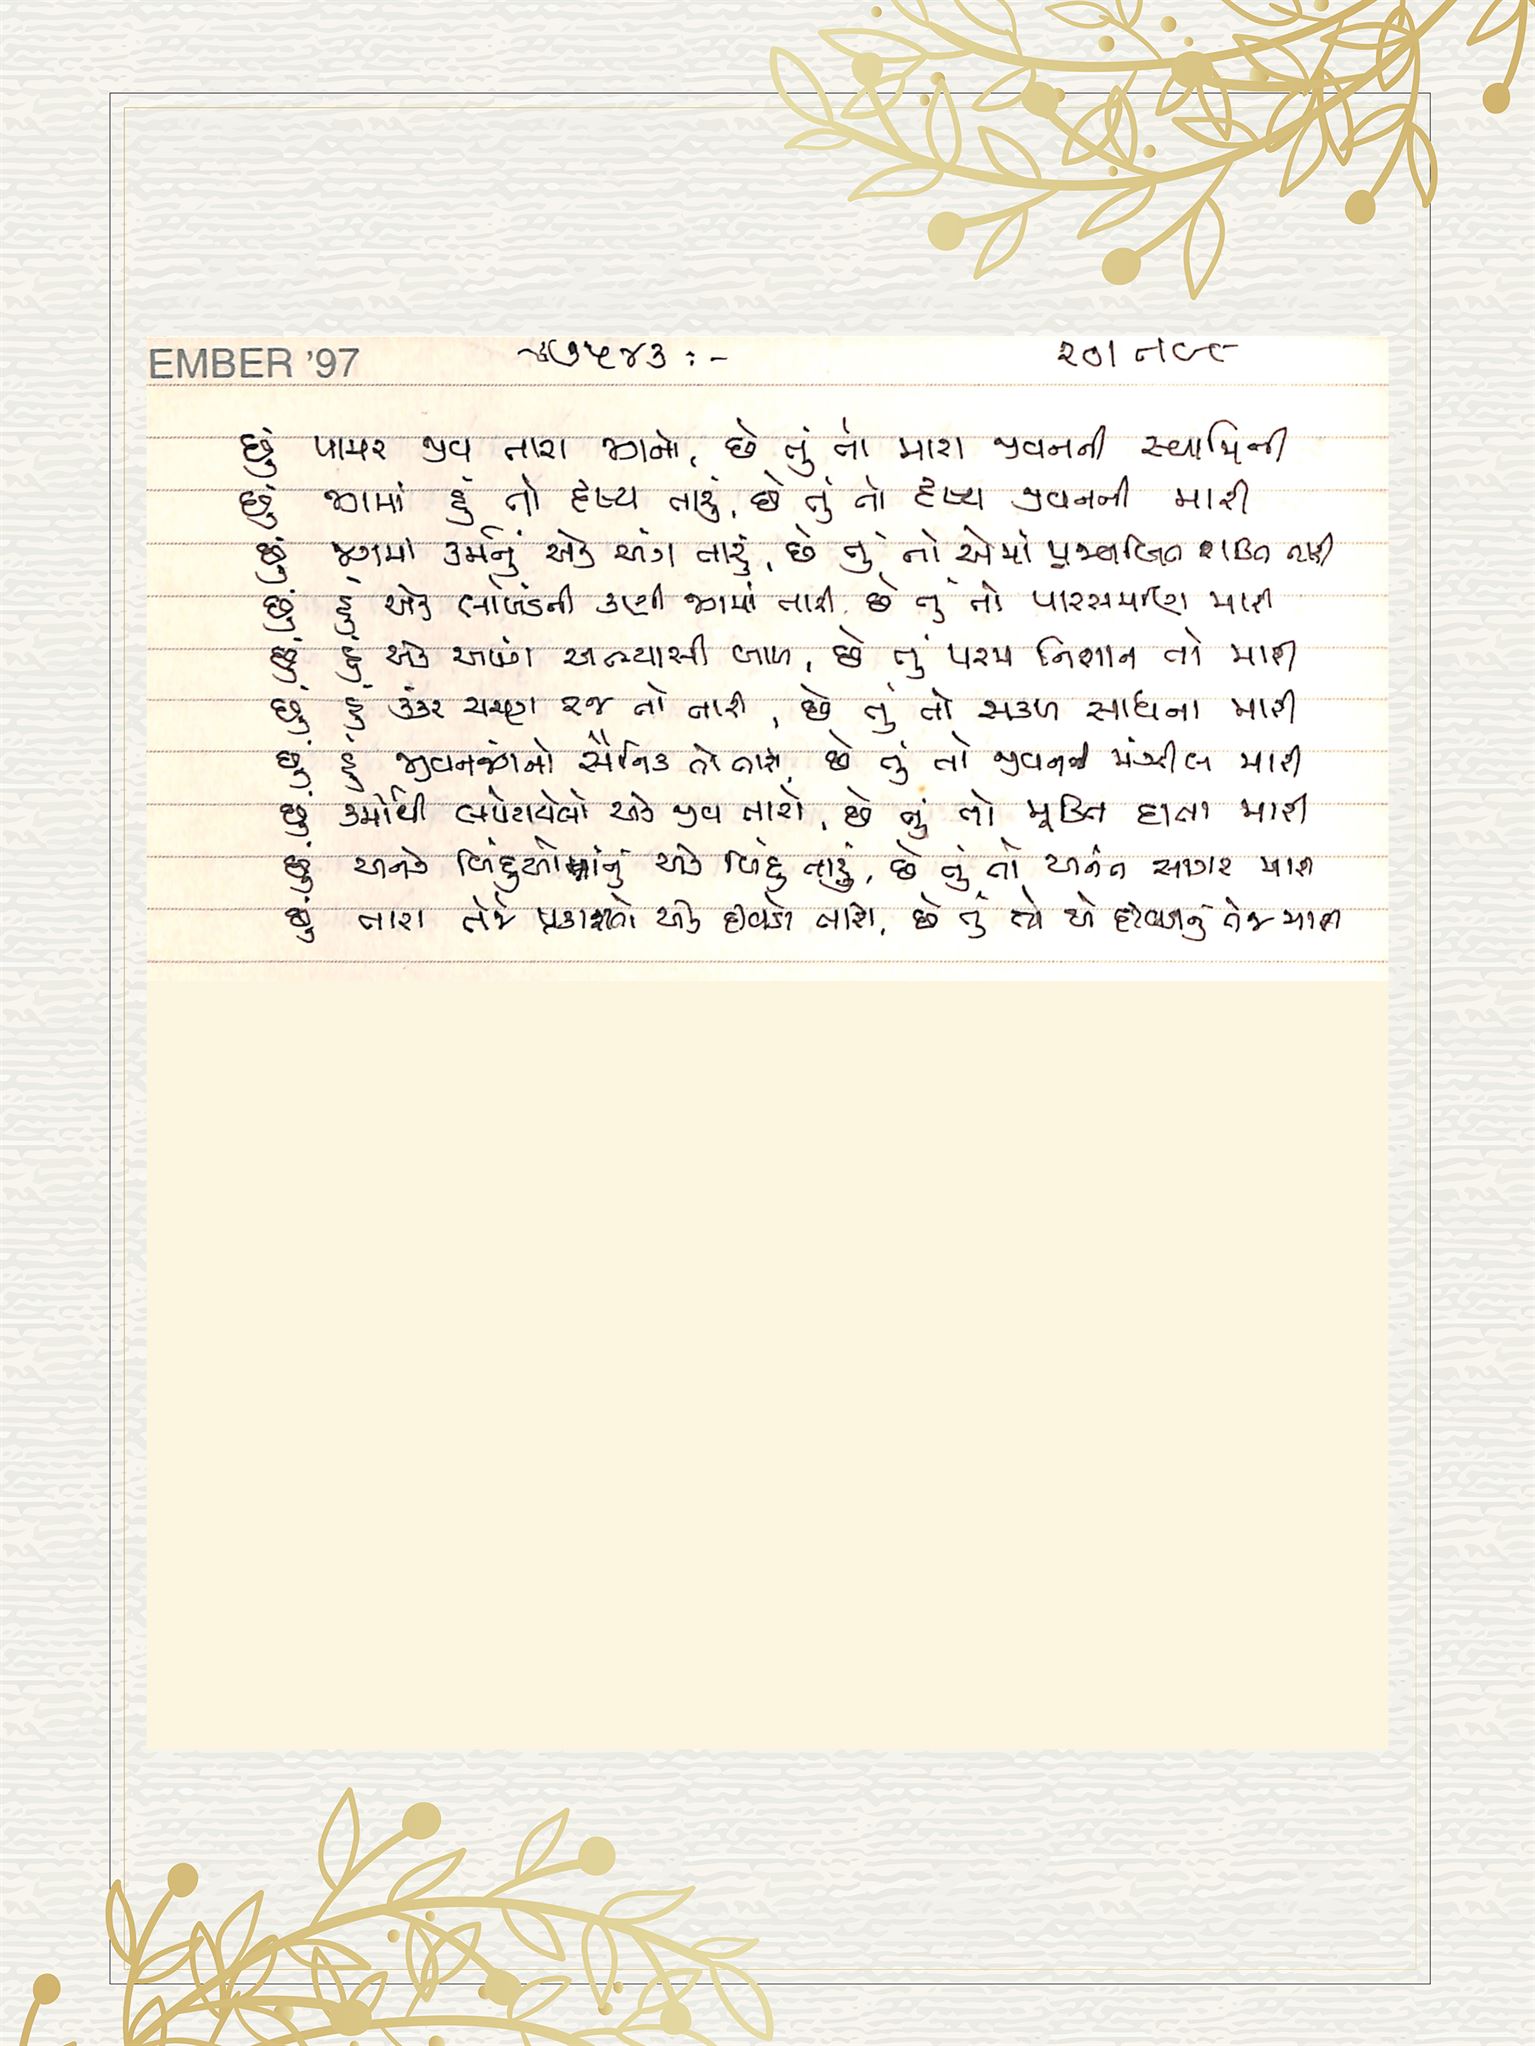 EMBER '97 ૭૫૪૩ :-
છું પામર જીવ તારા જગનો, છે તું તો મારા જીવનની સ્વામિની
છું જગમાં હું તો દૃષ્ય તારું, છે તું તો દૃષ્ય જીવનની મારી
છું જગમાં કર્મનું એક અંગ તારું, છે તું તો એમાં પ્રજ્વલિત શક્તિ
છું હું એક લોખંડની કણી જગમાં તારી, છે તું તો પારસમણિ મારી
છું હું એક અભ્યાસી બાળ, છે તું પરમ નિશાન તો મારી
છું હું કંકર ચરણ રજ તો તારી, છે તું તો સકળ સાધના મારી
છું હું જીવનજંગનો સૈનિક તો તારો, છે તું તો જીવનની મંઝીલ મારી
છું કર્મોથી લપેટાયેલો એક જીવ તારો, છે તું તો મુક્તિ દાતા મારી
છું અનેક બિંદુઓમાંનું એક બિંદુ તારું, છે તું તો અનંત સાગર મારા
છું તારા તેજ પ્રકાશનો એક દીવડો તારો, છે તું તો એ દીવડાનું તેજ મારા